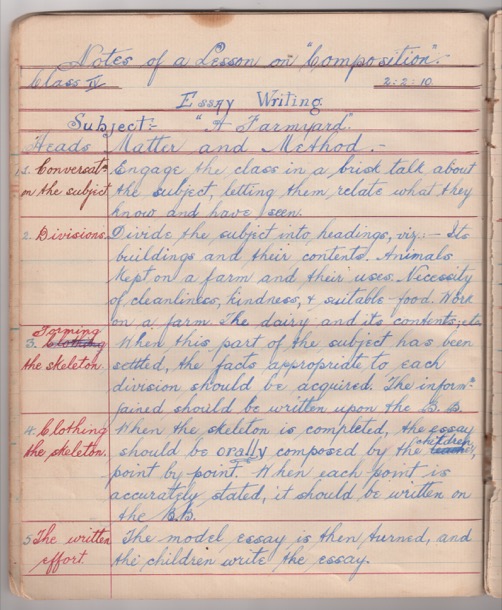 Notes of a Lesson on "Composition".
Class IV 2-2-10
Essay Writing
Subject:- "A Farmyard".
Heads Matter and Method.-
1. Conversatn Engage the class in a brisk talk about
on the subject the subject, letting them relate what they
know and have seen.
2. Divisions. Divide the subject into headings, viz:- Its
buildings and their contents. Animals
kept on a farm and their uses. Necessity
of cleanliness, kindness, & suitable food. Work
on a farm. The dairy and its contents, etc.
3. Forming Clothing When this part of the subject has been
the skeleton. settled, the facts appropriate to each
division should be acquired. The inform-n
gained should be written upon the B. B.
4. Clothing When the skeleton is completed, the essay
the skeleton. should be orally composed by the children,
point by point. When each point is
accurately stated, it should be written on
the B.B.
5 The written The model essay is then turned, and
effort. the children write the essay.